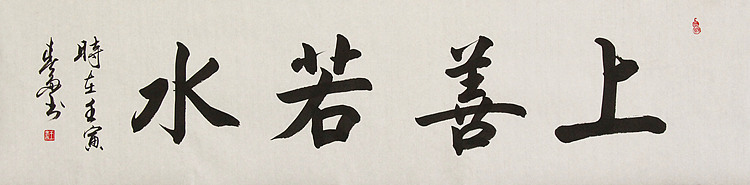 上善若水
時在壬寅